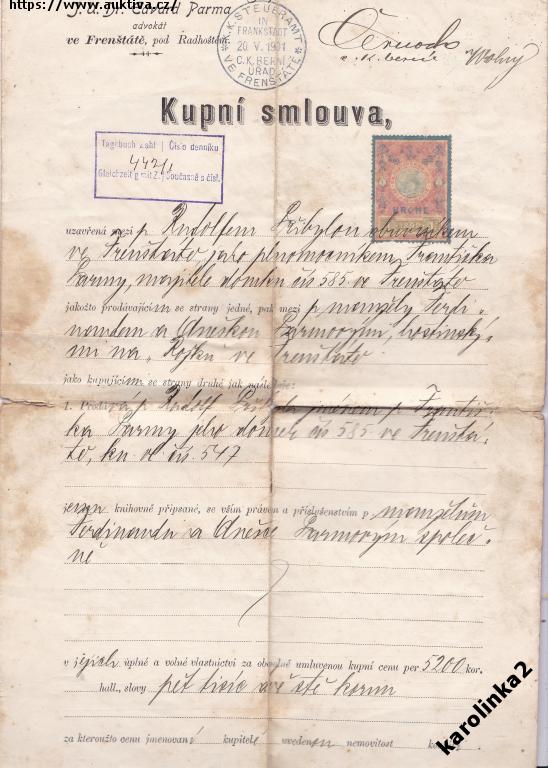 https://www.auktiva.cz/
J. u. Dr. Edvard Parma
advokát
ve Frenštátě, pod Radhoštěm.
K.K. STEUERAMT
IN
FRANKSTADT
20. V. 1901
C.K. BERNÍ
ÚŘAD
VE FRENŠTÁTĚ
Kupní smlouva,
Tagebuch zahl | Číslo denníku
442/1
Gleichzeitig mit Z. | Současně s čísl.
KRONE
uzavřená mezi p. Rudolfem Přibylou
ve Frenštátě, jako plnomocníkem Františka
Parmy, majitele domku čís 585 ve Frenštátě
jakožto prodávajícím se strany jedné, pak mezi p. manžely Ferdi-
nandem a Aneškou Parmovými, hostinský-
mi na „Rojku" ve Frenštátě
jako kupujícími se strany druhé jak následuje:
1. Prodává p. Rudolf Přibyla jménem p. Františ-
ka Parmy jeho domek čís 585 ve Frenštá-
tě, kn. vl. čís. 547
jemu knihovně připsané, se vším právem a příslušenstvím p. manželům
Ferdinandu a Anešce Parmovým společ-
ně
v jejich úplné a volné vlastnictví za obapolně umluvenou kupní cenu per 5200 kor.
hall., slovy pět tisíc dvě stě korun
za kteroužto cenu jmenovaní kupitelé uvedenou nemovitost
karolinka2